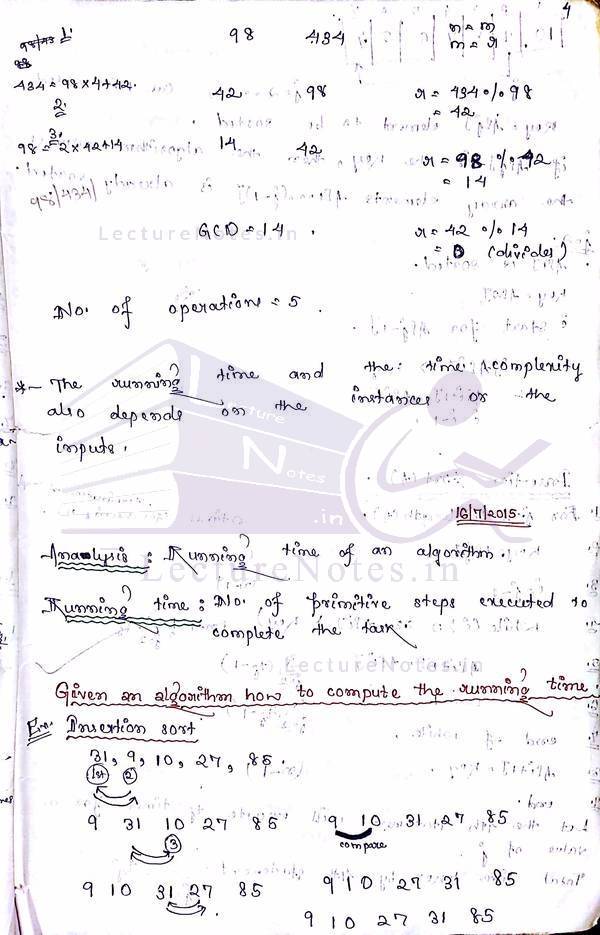 4
98 434 n = m
1. m = r
434 = 98 x 4 + 42. 42 98 r = 434 % 98
2. = 42
3.
98 = 2 x 42 + 14 14 42 r = 98 % 42
= 14
98/434/
LectureNotes.in
GCD = 14 . r = 42 % 14
= 0 (divides)
No. of operation = 5 .
* The running time and the time complexity
also depends on the instances or the
inputs .
Lecture
Notes
.in
16/7/2015
Analysis : Running time of an algorithm.
LectureNotes.in
Running time : No. of primitive steps executed to
complete the task
LectureNotes.in
Given an algorithm how to compute the running time.
Ex. Insertion sort
31, 9, 10, 27, 85.
1st 2
9 31 10 27 85 9 10 31 27 85
3 compare
9 10 31 27 85 9 10 27 31 85
9 10 27 31 85